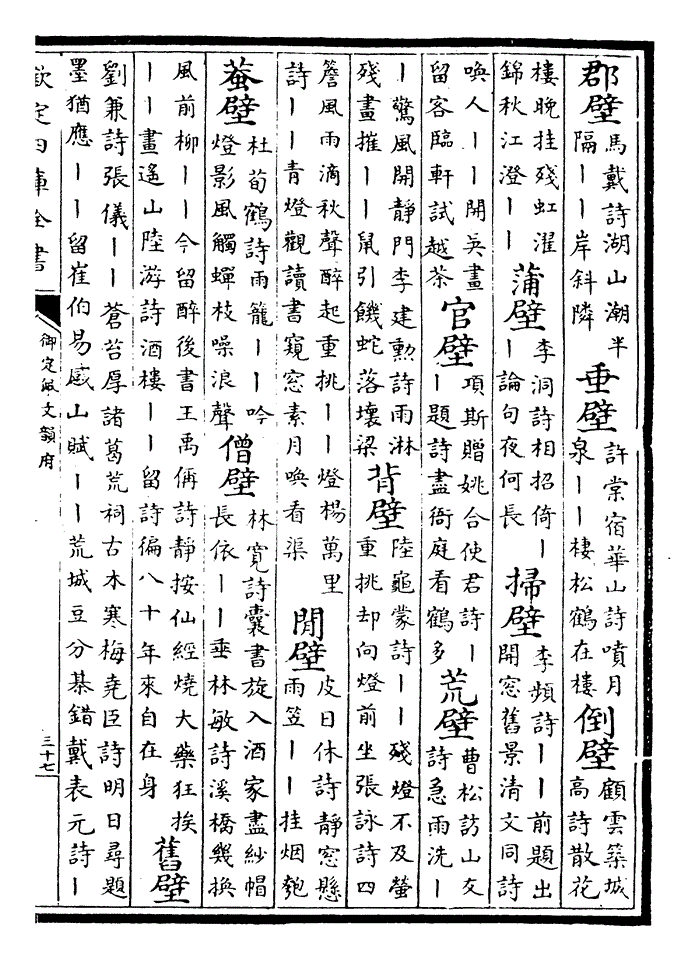 郡壁 馬戴詩湖山潮半
隔||岸斜隣
垂壁 許棠宿華山詩噴月
泉||棲松鶴在樓
倒壁 顧雲築城
高詩散花
樓晚挂殘虹濯
錦秋江澄||
蒲壁 李洞詩相招倚|
|論句夜何長
掃壁 李頻詩||前題出
開窓舊景清文同詩
喚人||開吳畫
留客臨軒試越茶
官壁 項斯贈姚合使君詩|
|題詩盡衙庭看鶴多
荒壁 曹松訪山友
詩急雨洗|
|驚風開靜門李建勳詩雨淋
殘畫摧||鼠引饑蛇落壞梁
背壁 陸龜蒙詩||殘燈不及螢
重挑却向燈前坐張詠詩四
簷風雨滴秋聲醉起重挑||燈楊萬里
詩||青燈觀讀書窺窓素月喚看渠
閒壁 皮日休詩靜窓懸
雨笠||挂烟匏
蛬壁 杜荀鶴詩雨籠||吟
燈影風觸蟬枝噪浪聲
僧壁 林寬詩囊書旋入酒家盡紗帽
長依||垂林敏詩溪橋幾換
風前柳||今留醉後書王禹偁詩靜按仙經燒大藥狂挨
||畫遙山陸游詩酒樓||留詩徧八十年來自在身
舊壁
劉兼詩張儀||蒼苔厚諸葛荒祠古木寒梅堯臣詩明日尋題
墨猶應||留崔伯易感山賦||荒城豆分棊錯戴表元詩|
欽定四庫全書
御定佩文韻府
三十七